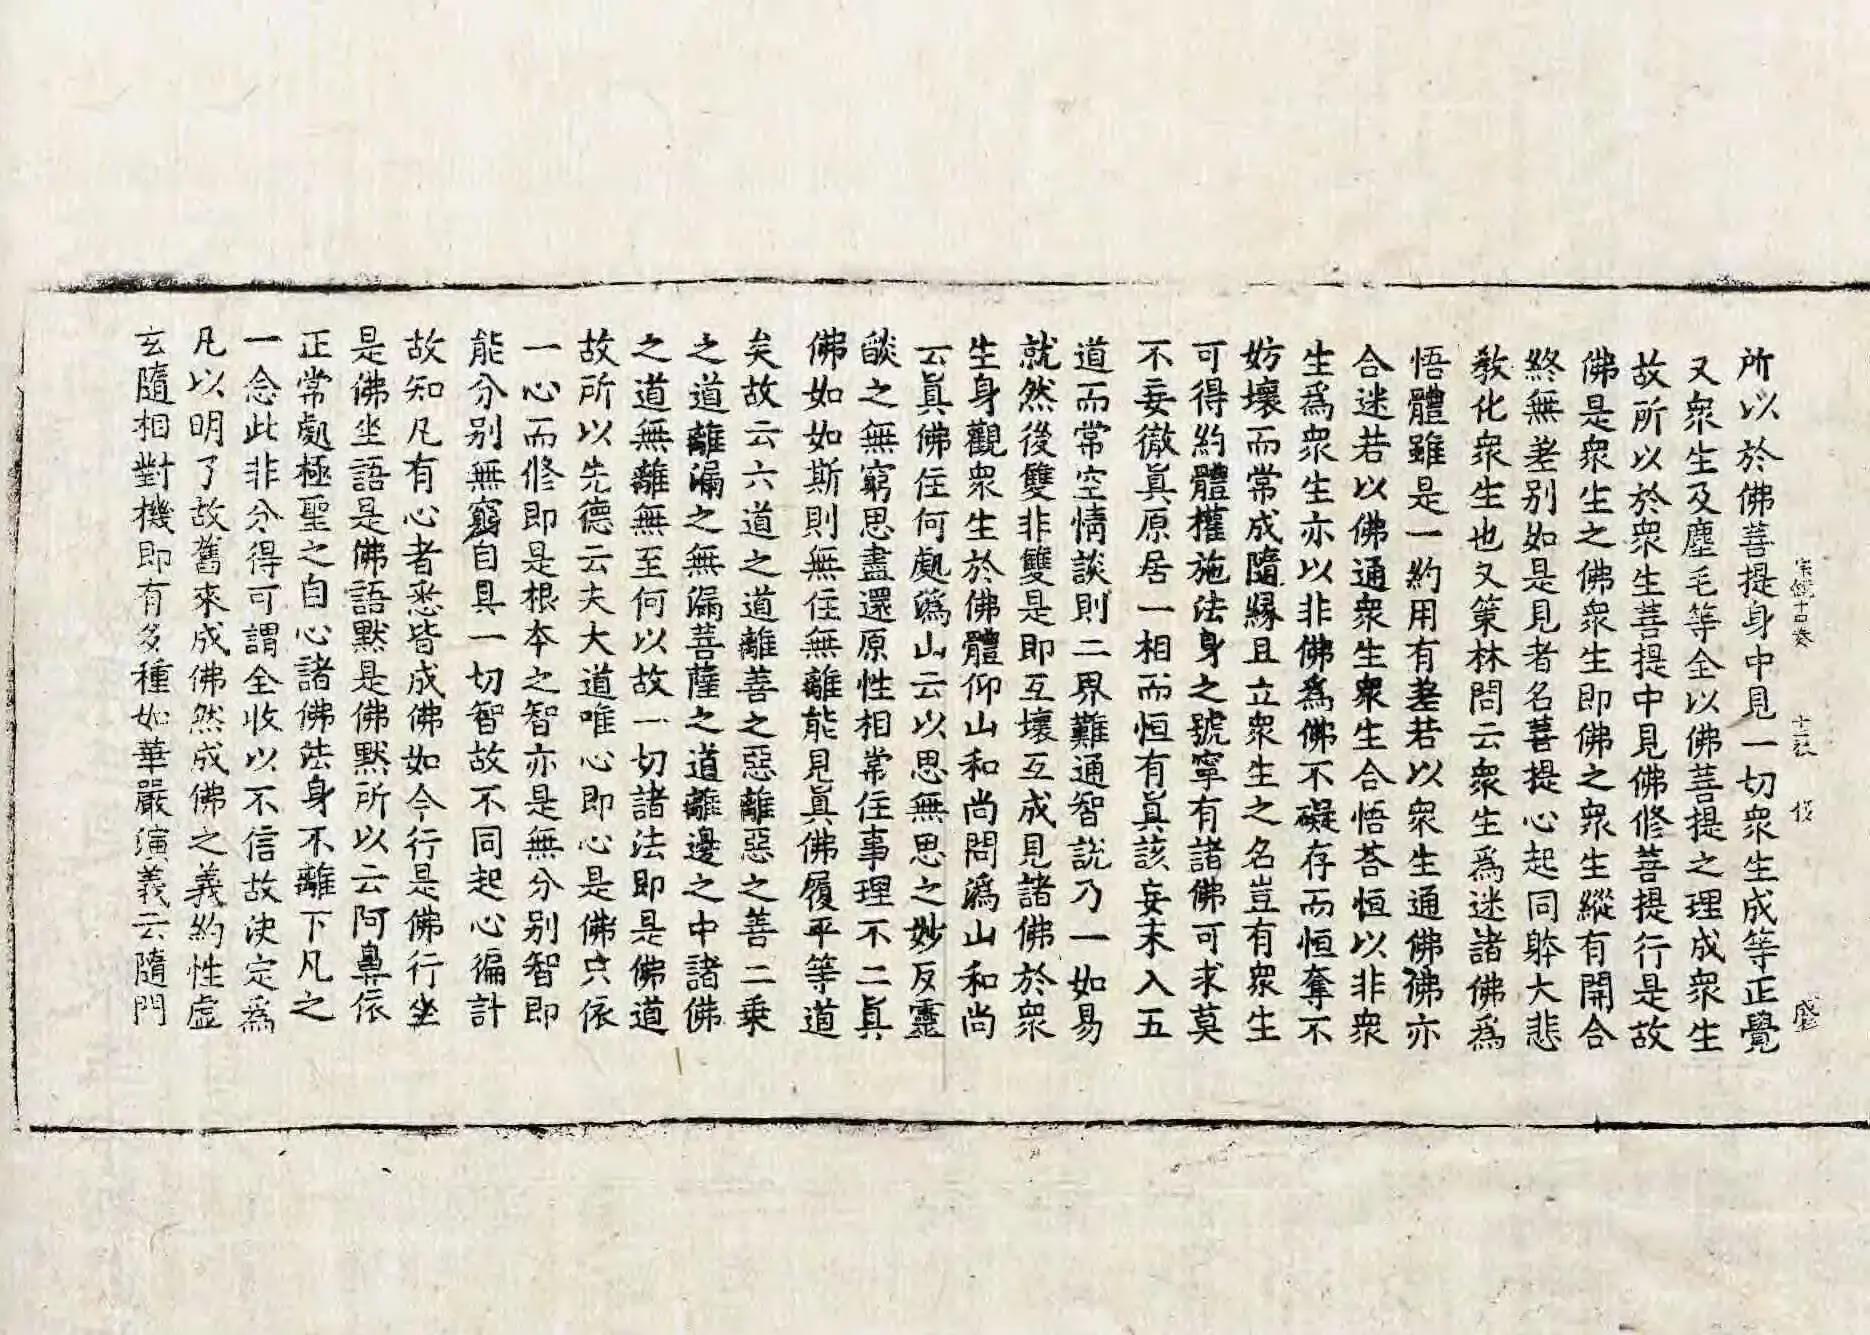 宗鏡十四卷 十二張 盛
所以於佛菩提身中見一切衆生成等正覺
又衆生及塵毛等全以佛菩提之理成衆生
故所以於衆生菩提中見佛修菩提行是故
佛是衆生之佛衆生即佛之衆生縱有開合
終無差别如是見者名菩提心起同躰大悲
教化衆生也又䇿林問云衆生爲迷諸佛爲
悟體雖是一約用有差若以衆生通佛佛亦
合迷若以佛通衆生衆生合悟荅恒以非衆
生爲衆生亦以非佛爲佛不礙存而恒奪不
妨壞而常成隨縁且立衆生之名豈有衆生
可得約體權施法身之號寧有諸佛可求莫
不妄徹眞原居一相而恒有眞該妄末入五
道而常空情談則二界難通智說乃一如易
就然後雙非雙是即互壞互成見諸佛於衆
生身觀衆生於佛體仰山和尚問潙山和尚
云眞佛住何處潙山云以思無思之妙反靈
燄之無窮思盡還原性相常住事理不二眞
佛如如斯則無住無離能見眞佛履平等道
矣故云六道之道離善之惡離惡之善二乗
之道離漏之無漏菩薩之道離邊之中諸佛
之道無離無至何以故一切諸法即是佛道
故所以先德云夫大道唯心即心是佛只依
一心而修即是根本之智亦是無分别智即
能分别無窮自具一切智故不同起心徧計
故知凡有心者悉皆成佛如今行是佛行坐
是佛坐語是佛語默是佛默所以云阿鼻依
正常處極聖之自心諸佛法身不離下凡之
一念此非分得可謂全收以不信故决定爲
凡以明了故舊來成佛然成佛之義約性虛
玄隨相對機即有多種如華嚴演義云隨門